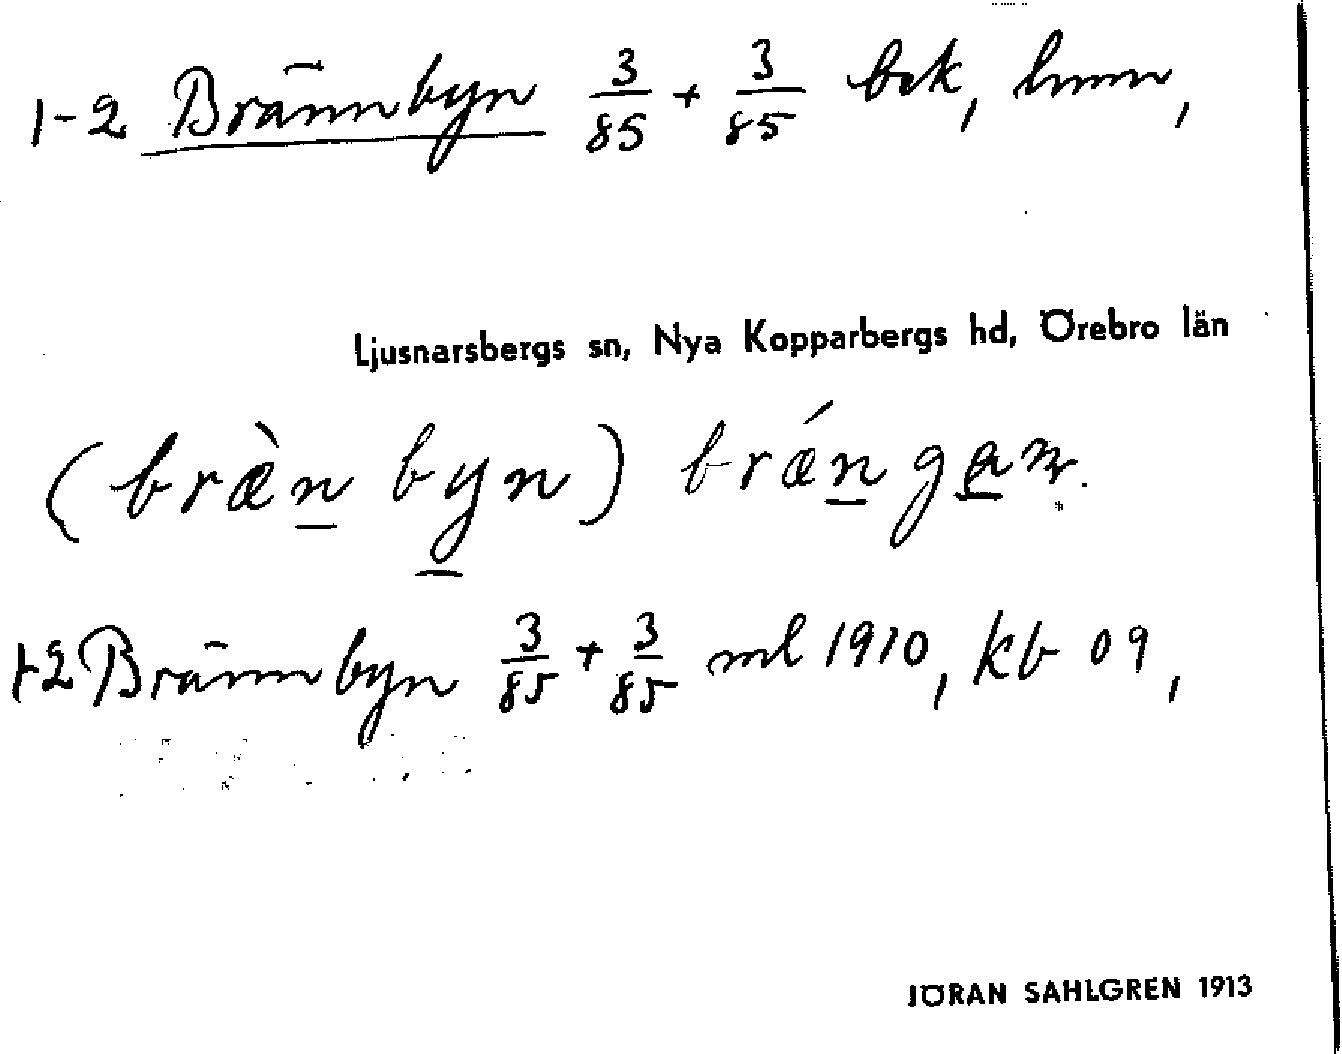 1-2 Brännbyn 3/85 + 3/85 bek, hmm,
Ljusnarsbergs sn, Nya Kopparbergs hd, Örebro län
(bræ̀n byn) brǽn gan.
1-2 Brännbyn 3/85 + 3/85 ml 1910, kb 09,
JÖRAN SAHLGREN 1913